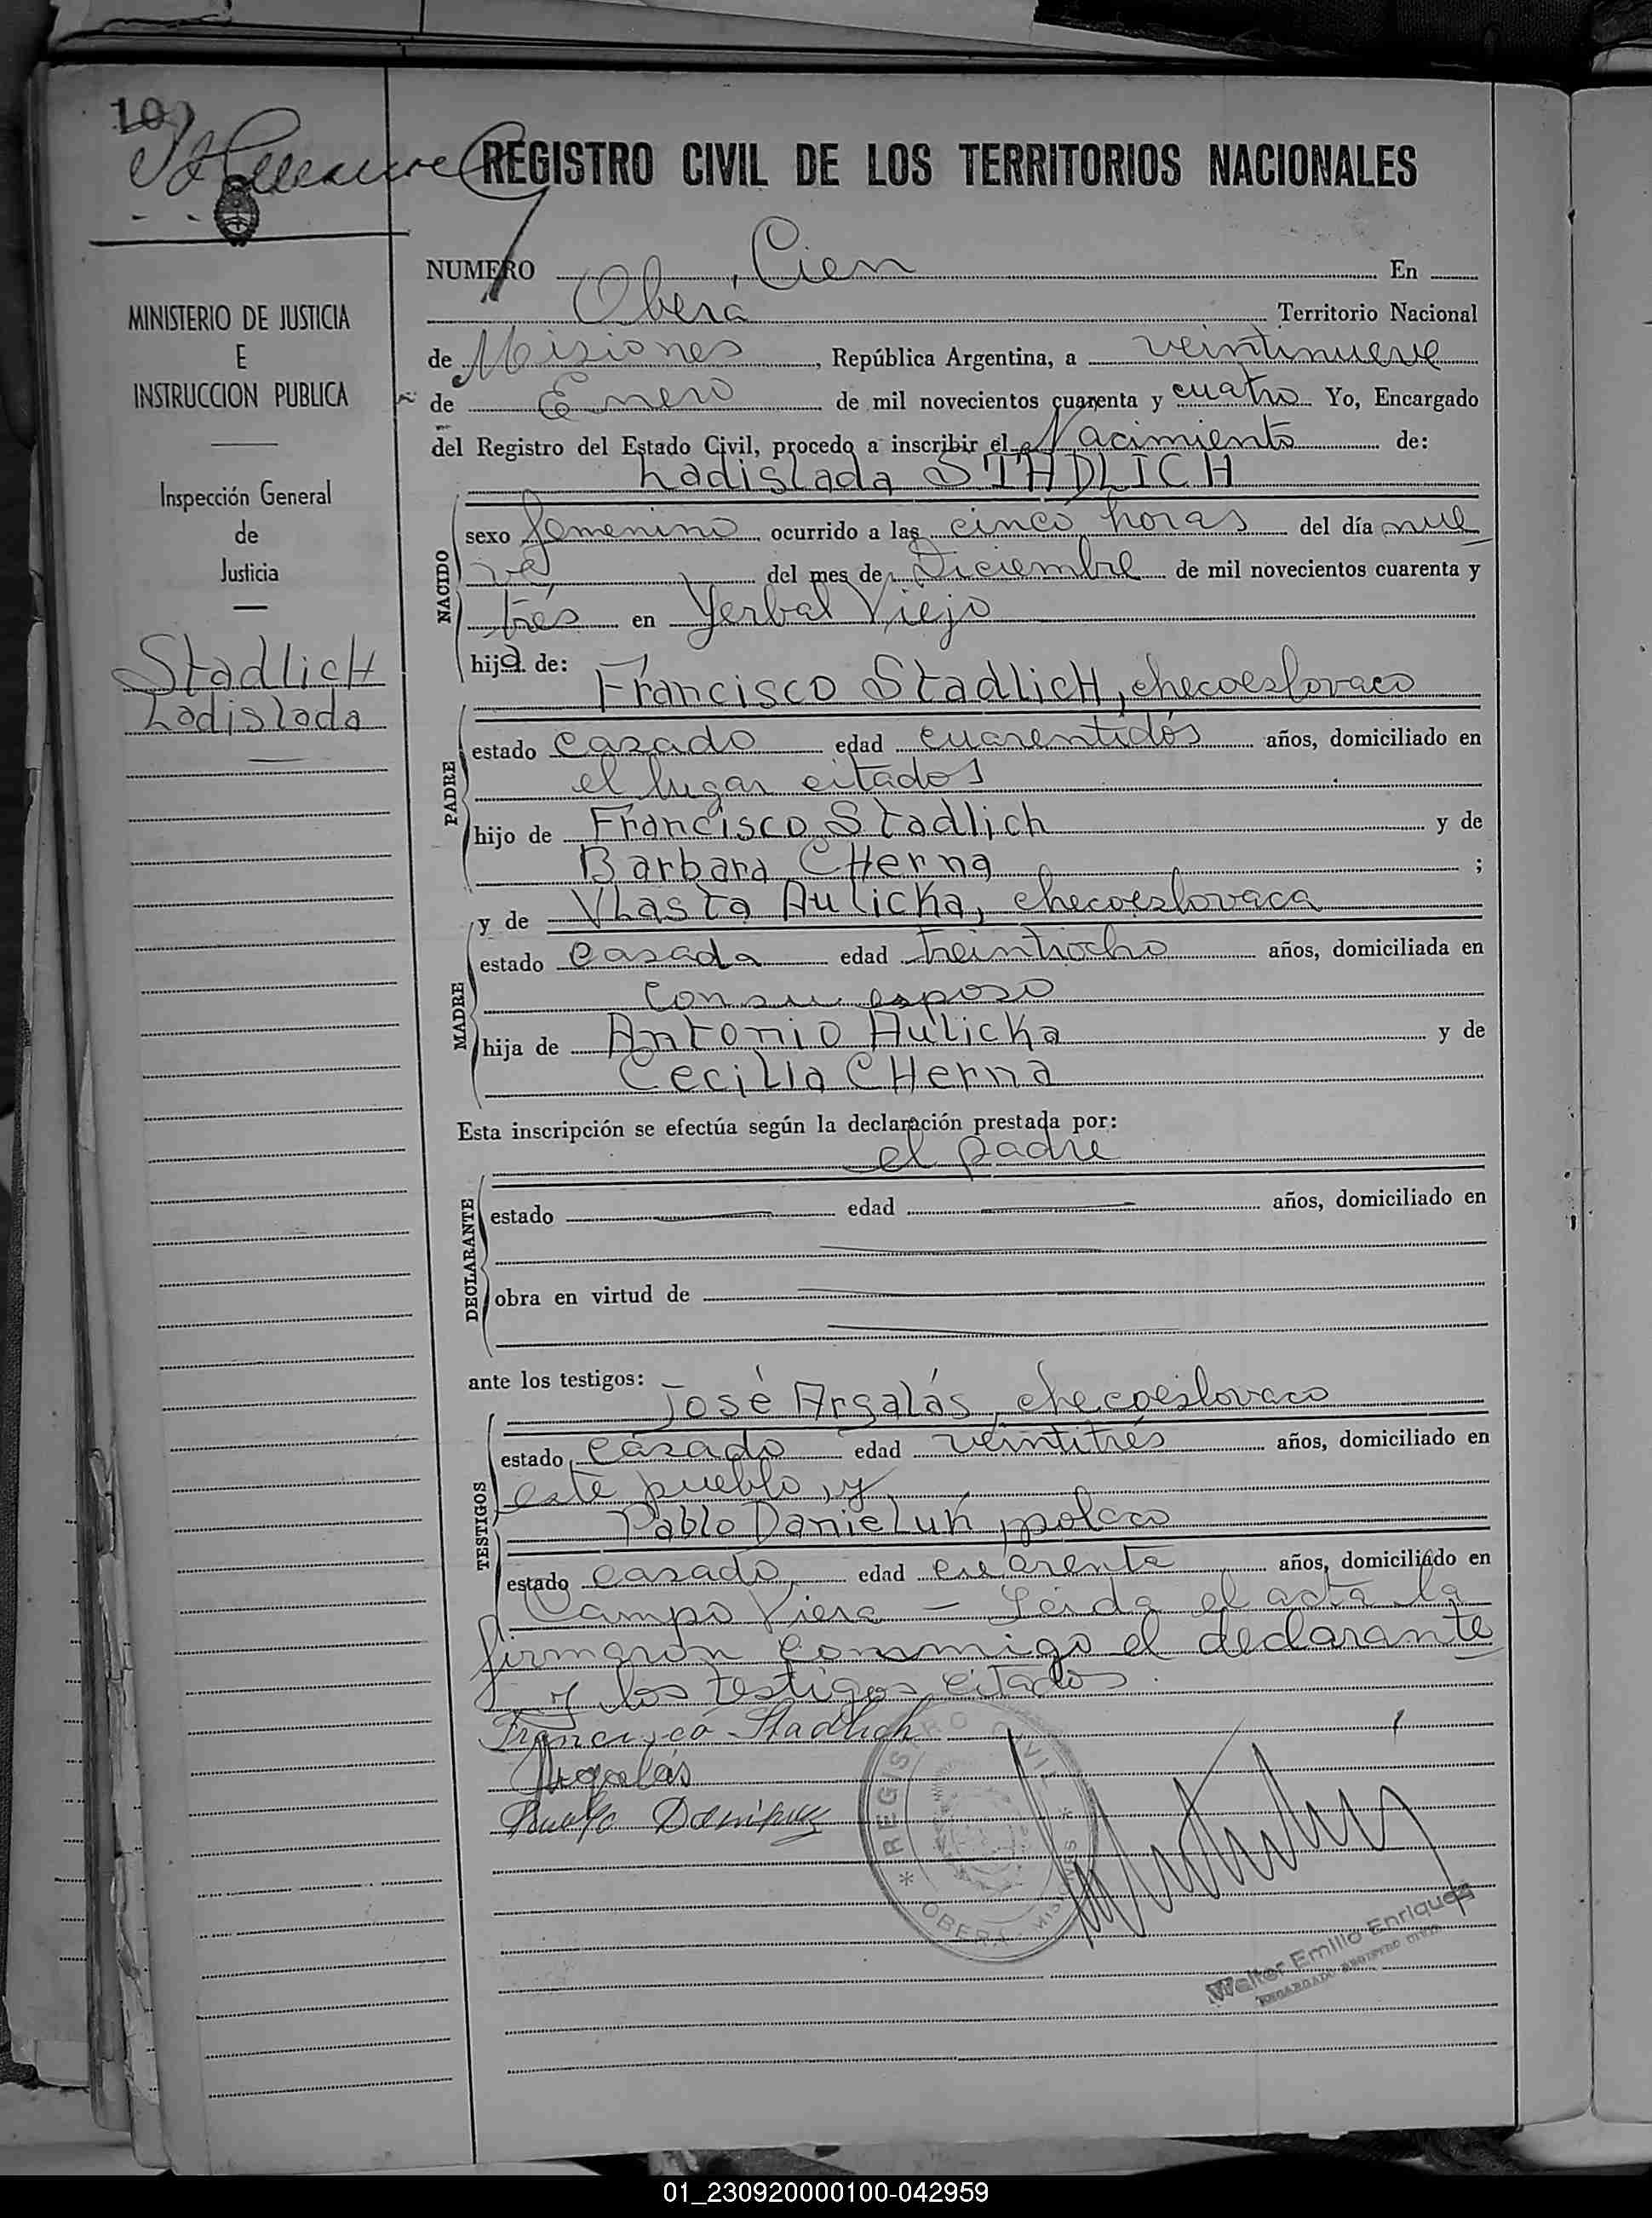 10
REGISTRO CIVIL DE LOS TERRITORIOS NACIONALES
NUMERO Cien En
Oberá Territorio Nacional
de Misiones, República Argentina, a veintinueve
de Enero de mil novecientos cuarenta y cuatro Yo, Encargado
del Registro del Estado Civil, procedo a inscribir el Nacimiento de:
Ladislada STADLICH
sexo femenino ocurrido a las cinco horas del día nue
ve del mes de Diciembre de mil novecientos cuarenta y
tres en Yerbal Viejo
hija de:
Francisco StadlicH, checoeslovaco
estado casado edad cuarentidós años, domiciliado en
el lugar citados
hijo de Francisco Stadlich y de
Barbara CHerna ;
y de Vlasta Aulicka, checoeslovaca
estado casada edad treintiocho años, domiciliada en
con su esposo
hija de Antonio Aulicka y de
Cecilia CHerna
Esta inscripción se efectúa según la declaración prestada por:
el padre
estado edad años, domiciliado en
obra en virtud de
ante los testigos:
José Argalás, checoeslovaco
estado casado edad veintitrés años, domiciliado en
este pueblo, y
Pablo Danieluk, polaco
estado casado, edad cuarenta años, domiciliado en
Campo Viera – Leida el acta la
firmaron conmigo el declarante
y los testigos citados.
Francisco Stadlich
Argalás
NACIDO
PADRE
MADRE
DECLARANTE
TESTIGOS
MINISTERIO DE JUSTICIA
E
INSTRUCCION PUBLICA
Inspección General
de
Justicia
StadlicH
Ladislada
* REGISTRO CIVIL *
OBERA MISIONES
Walter Emilio Enriquez
ENCARGADO REGISTRO CIVIL
01_230920000100-042959